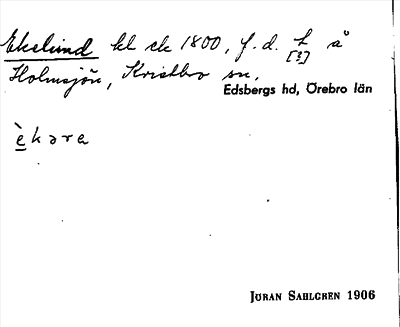 Ekelund kl ck 1800, f. d. h å
[?]
Holmsjön, Kristbro sn,
Edsbergs hd, Örebro län
èkəra
JÖRAN SAHLGREN 1906